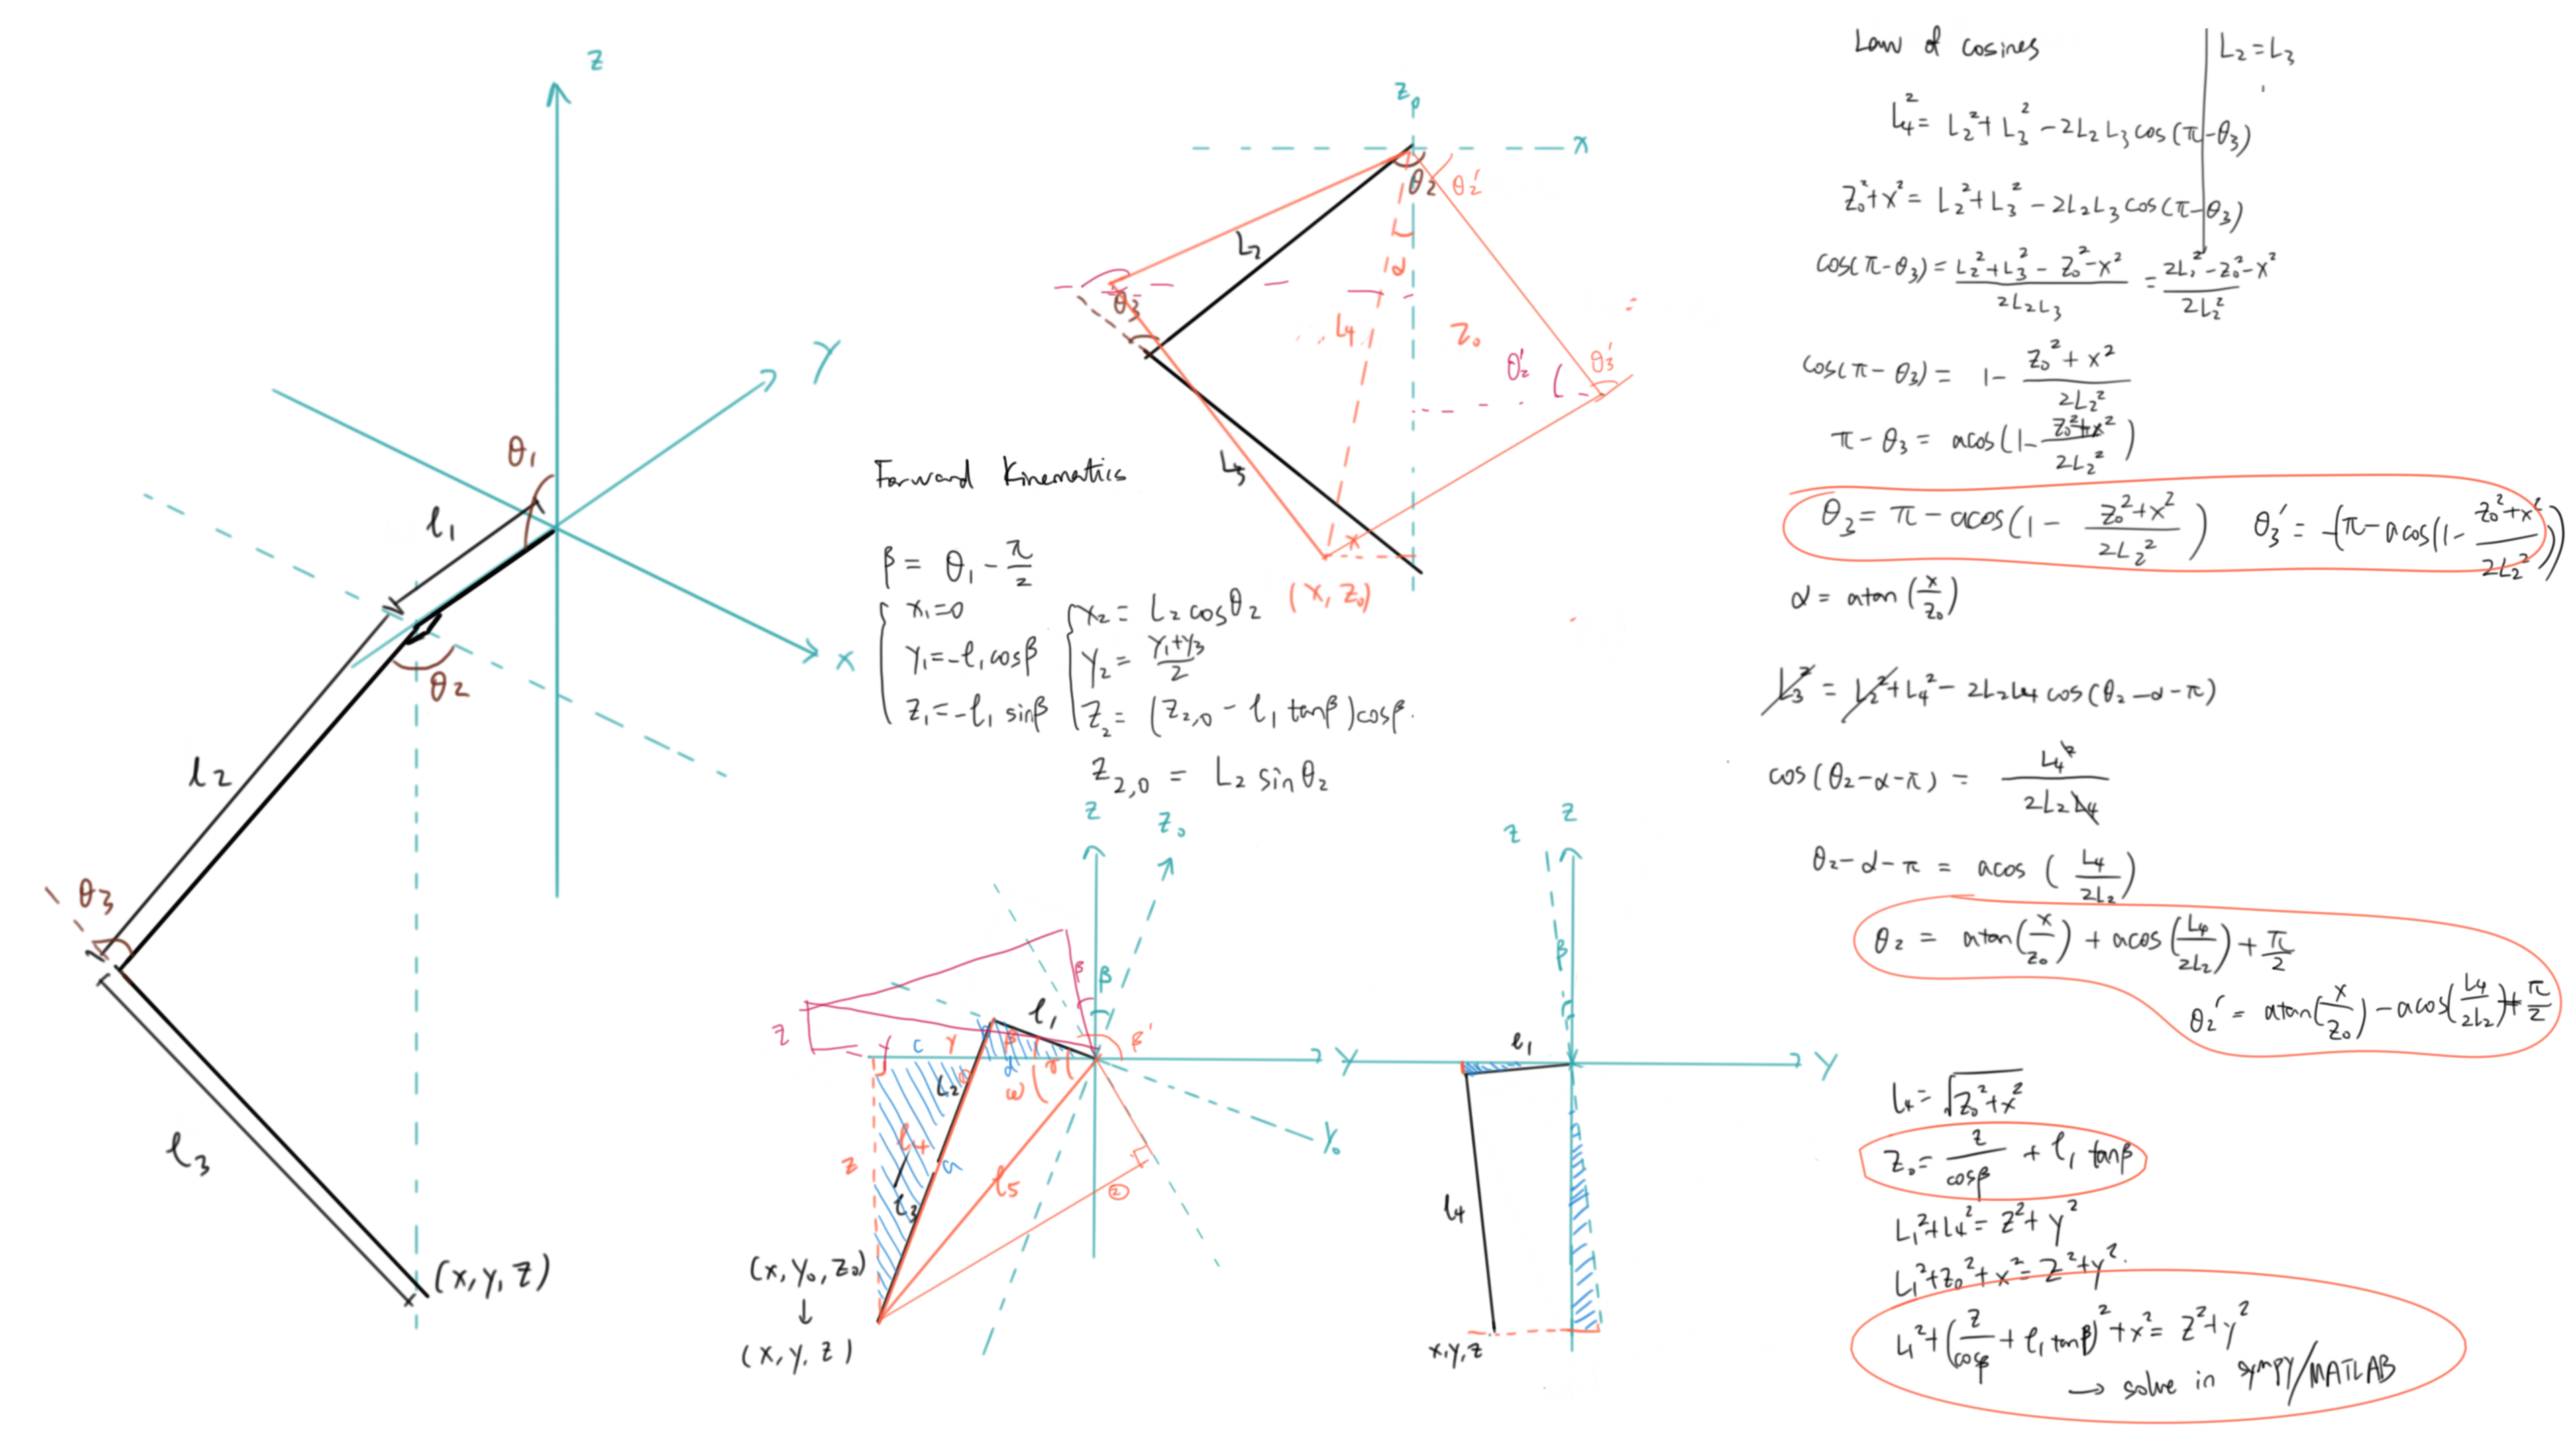 z
Y
x
θ₁
l₁
θ₂
l₂
θ₃
l₃
(x, y, z)
z₀
x
θ₂
θ₂'
L₂
α
θ₃
L₄
z₀
θ₂'
θ₃'
L₃
x
(x, z₀)
Forward Kinematics
β = θ₁ - π/2
x₁=0
y₁=-l₁cosβ
z₁=-l₁ sinβ
x₂= L₂ cosθ₂
y₂= (y₁+y₃)/2
z₂= (z₂,₀ - l₁ tanβ)cosβ.
z₂,₀ = L₂ sinθ₂
z
z₀
β
β
l₁
β'
z
c
γ
β
d
γ
ω
L₂
Y
Y₀
z
l₄
a
l₃
l₅
②
(x, y₀, z₀)
↓
(x, y, z)
z
z
β
l₁
Y
l₄
x,y,z
Law of cosines
L₂=L₃
L₄² = L₂²+L₃² - 2L₂L₃cos(π-θ₃)
z₀²+x² = L₂²+L₃² - 2L₂L₃cos(π-θ₃)
cos(π-θ₃) = (L₂²+L₃² - z₀²-x²)/(2L₂L₃) = (2L₂²-z₀²-x²)/(2L₂²)
cos(π-θ₃) = 1 - (z₀²+x²)/(2L₂²)
π-θ₃ = acos(1-(z₀²+x²)/(2L₂²))
θ₃= π-acos(1- (z₀²+x²)/(2L₂²)) θ₃' = -(π-acos(1-(z₀²+x²)/(2L₂²)))
α = atan(x/z₀)
L₃² = L₂²+L₄²- 2L₂L₄ cos(θ₂-α-π)
cos(θ₂-α-π) = L₄²/(2L₂L₄)
θ₂-α-π = acos(L₄/(2L₂))
θ₂ = atan(x/z₀) + acos(L₄/(2L₂)) + π/2
θ₂' = atan(x/z₀) - acos(L₄/(2L₂)) + π/2
L₄= √(z₀²+x²)
z₀= z/cosβ + l₁ tanβ
L₁²+L₄²= z²+y²
L₁²+z₀²+x²= z²+y².
L₁²+(z/cosβ + l₁ tanβ)²+x²= z²+y²
→ solve in sympy/MATLAB